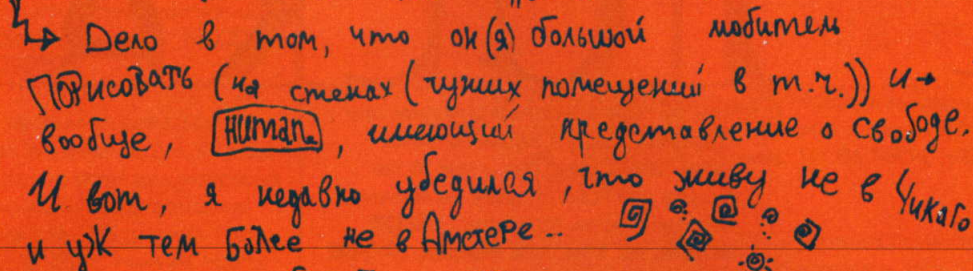 Дело в том, что он(я) большой любитель
ПОРИСОВАТЬ (на стенах (чужих помещений в т.ч.)) и
вообще, human, имеющий представление о свободе.
И вот, я недавно убедился, что живу не в Чикаго
и уж тем более не в Амстере..